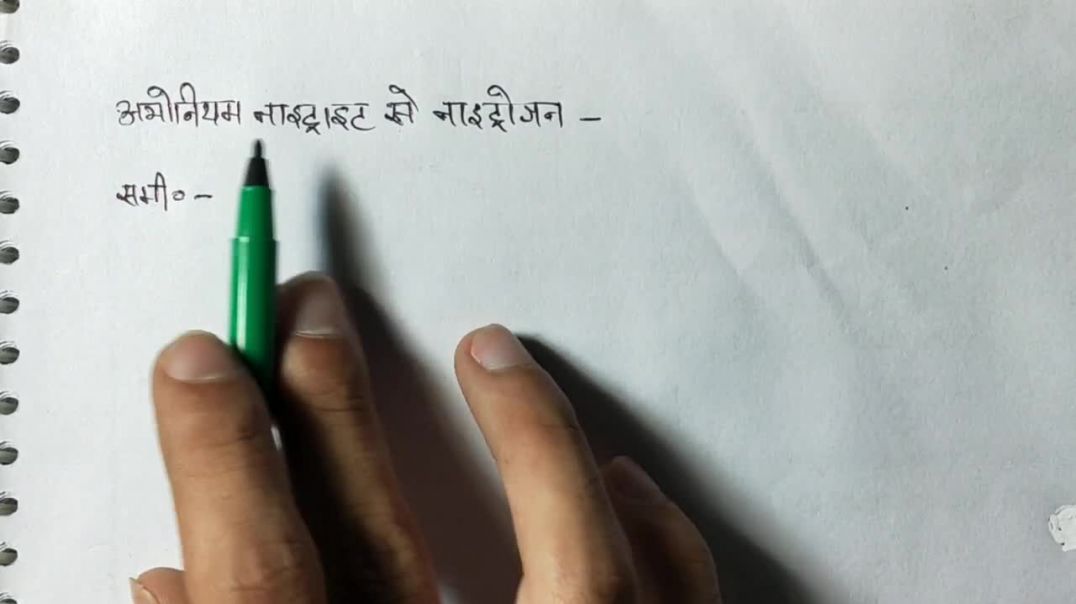 अमोनियम नाइट्राइट से नाइट्रोजन –
समी० –